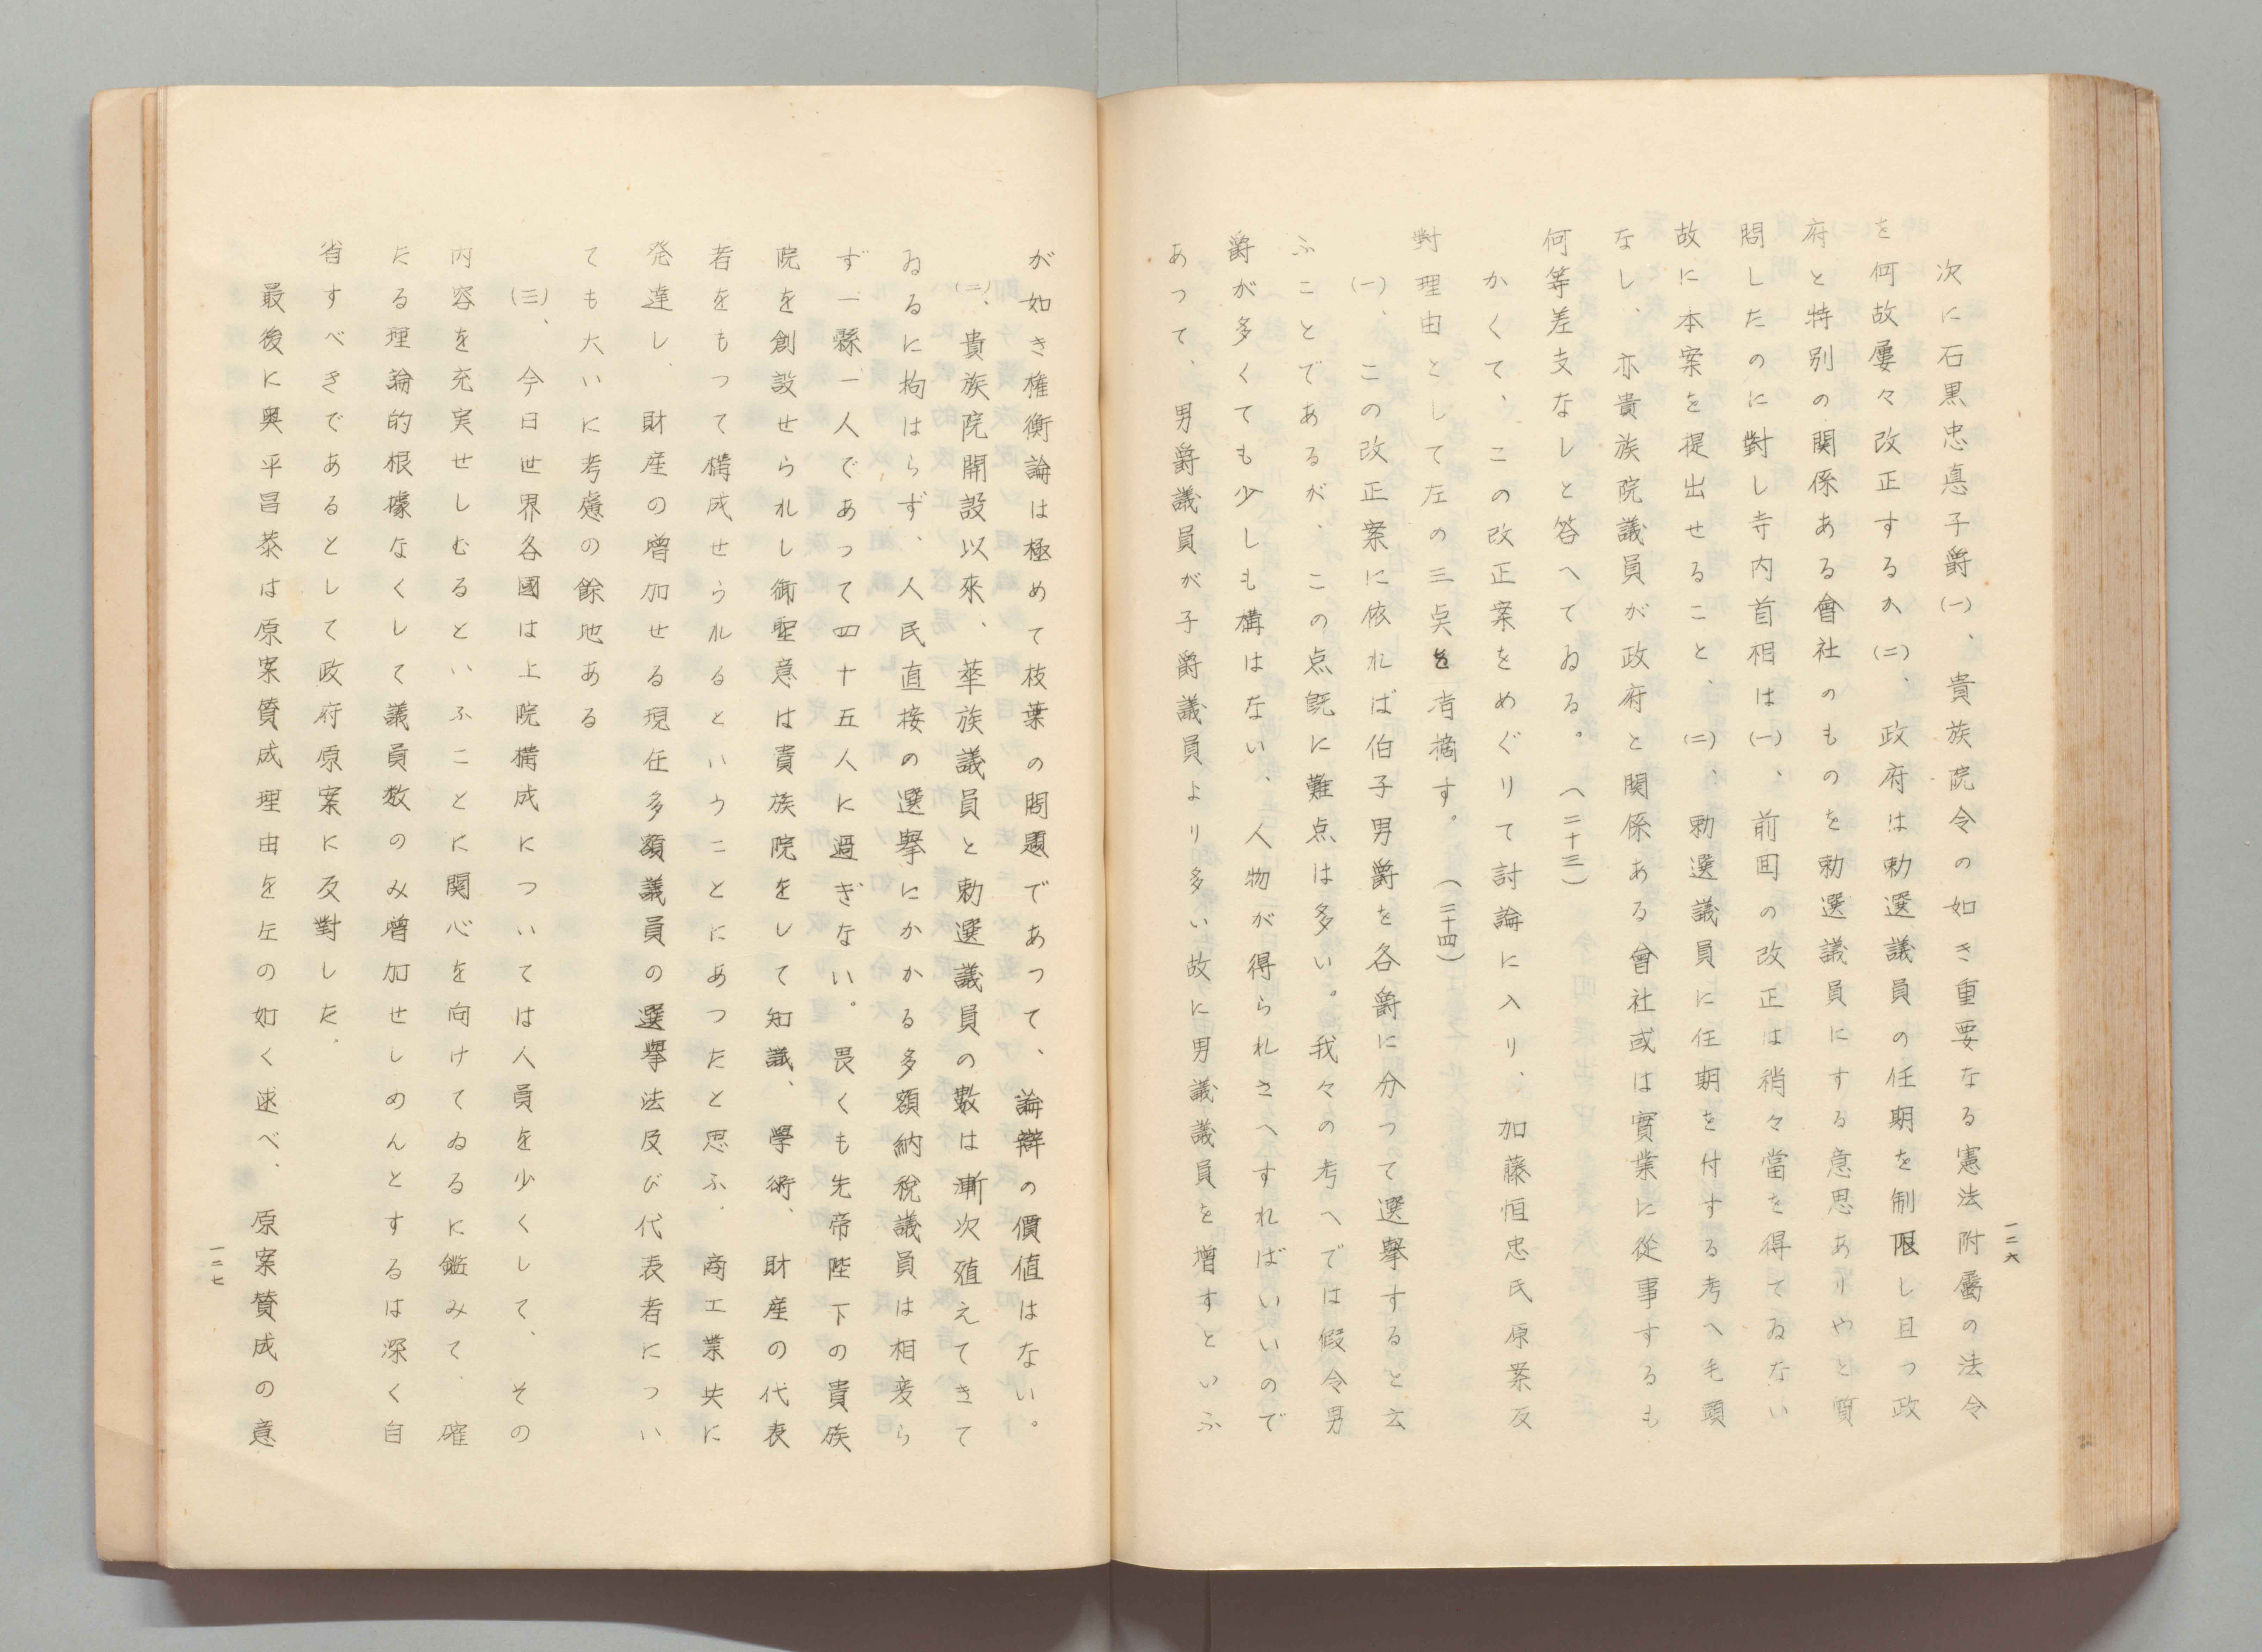 一二六
次に石黒忠悳子爵(一)、貴族院令の如き重要なる憲法附屬の法令
を何故屢々改正するか(二)、政府は勅選議員の任期を制限し且つ政
府と特別の関係ある會社のものを勅選議員にする意思ありやと質
問したのに對し寺内首相は(一)、前回の改正は稍々當を得てゐない
故に本案を提出せること、(二)、勅選議員に任期を付する考へ毛頭
なし、亦貴族院議員が政府と関係ある會社或は實業に從事するも
何等差支なしと答へてゐる。(二十三)
かくて、この改正案をめぐりて討論に入り、加藤恒忠氏原案反
對理由として左の三点を指摘す。(二十四)
(一)、この改正案に依れば伯子男爵を各爵に分つて選擧すると云
ふことであるが、この点既に難点は多い。我々の考へでは假令男
爵が多くても少しも構はない、人物が得られさへすればいいので
あつて、男爵議員が子爵議員より多い故に男議議員を増すといふ
が如き権衡論は極めて枝葉の問題であつて、論辯の價値はない。
(二)、貴族院開設以來、華族議員と勅選議員の數は漸次殖えてきて
ゐるに拘はらず、人民直接の選擧にかかる多額納税議員は相変ら
ず一縣一人であつて四十五人に過ぎない。畏くも先帝陛下の貴族
院を創設せられし御聖意は貴族院をして知識、學術、財産の代表
者をもつて構成せらルるということにあつたと思ふ。商工業共に
発達し、財産の増加せる現任多額議員の選擧法及び代表者につい
ても大いに考慮の餘地ある
(三)、今日世界各國は上院構成については人員を少くして、その
内容を充実せしむるといふことに関心を向けてゐるに鑑みて、確
たる理論的根據なくして議員数のみ増加せしめんとするは深く自
省すべきであるとして政府原案に反對した。
最後に奥平昌恭は原案賛成理由を左の如く述べ、原案賛成の意
一二七